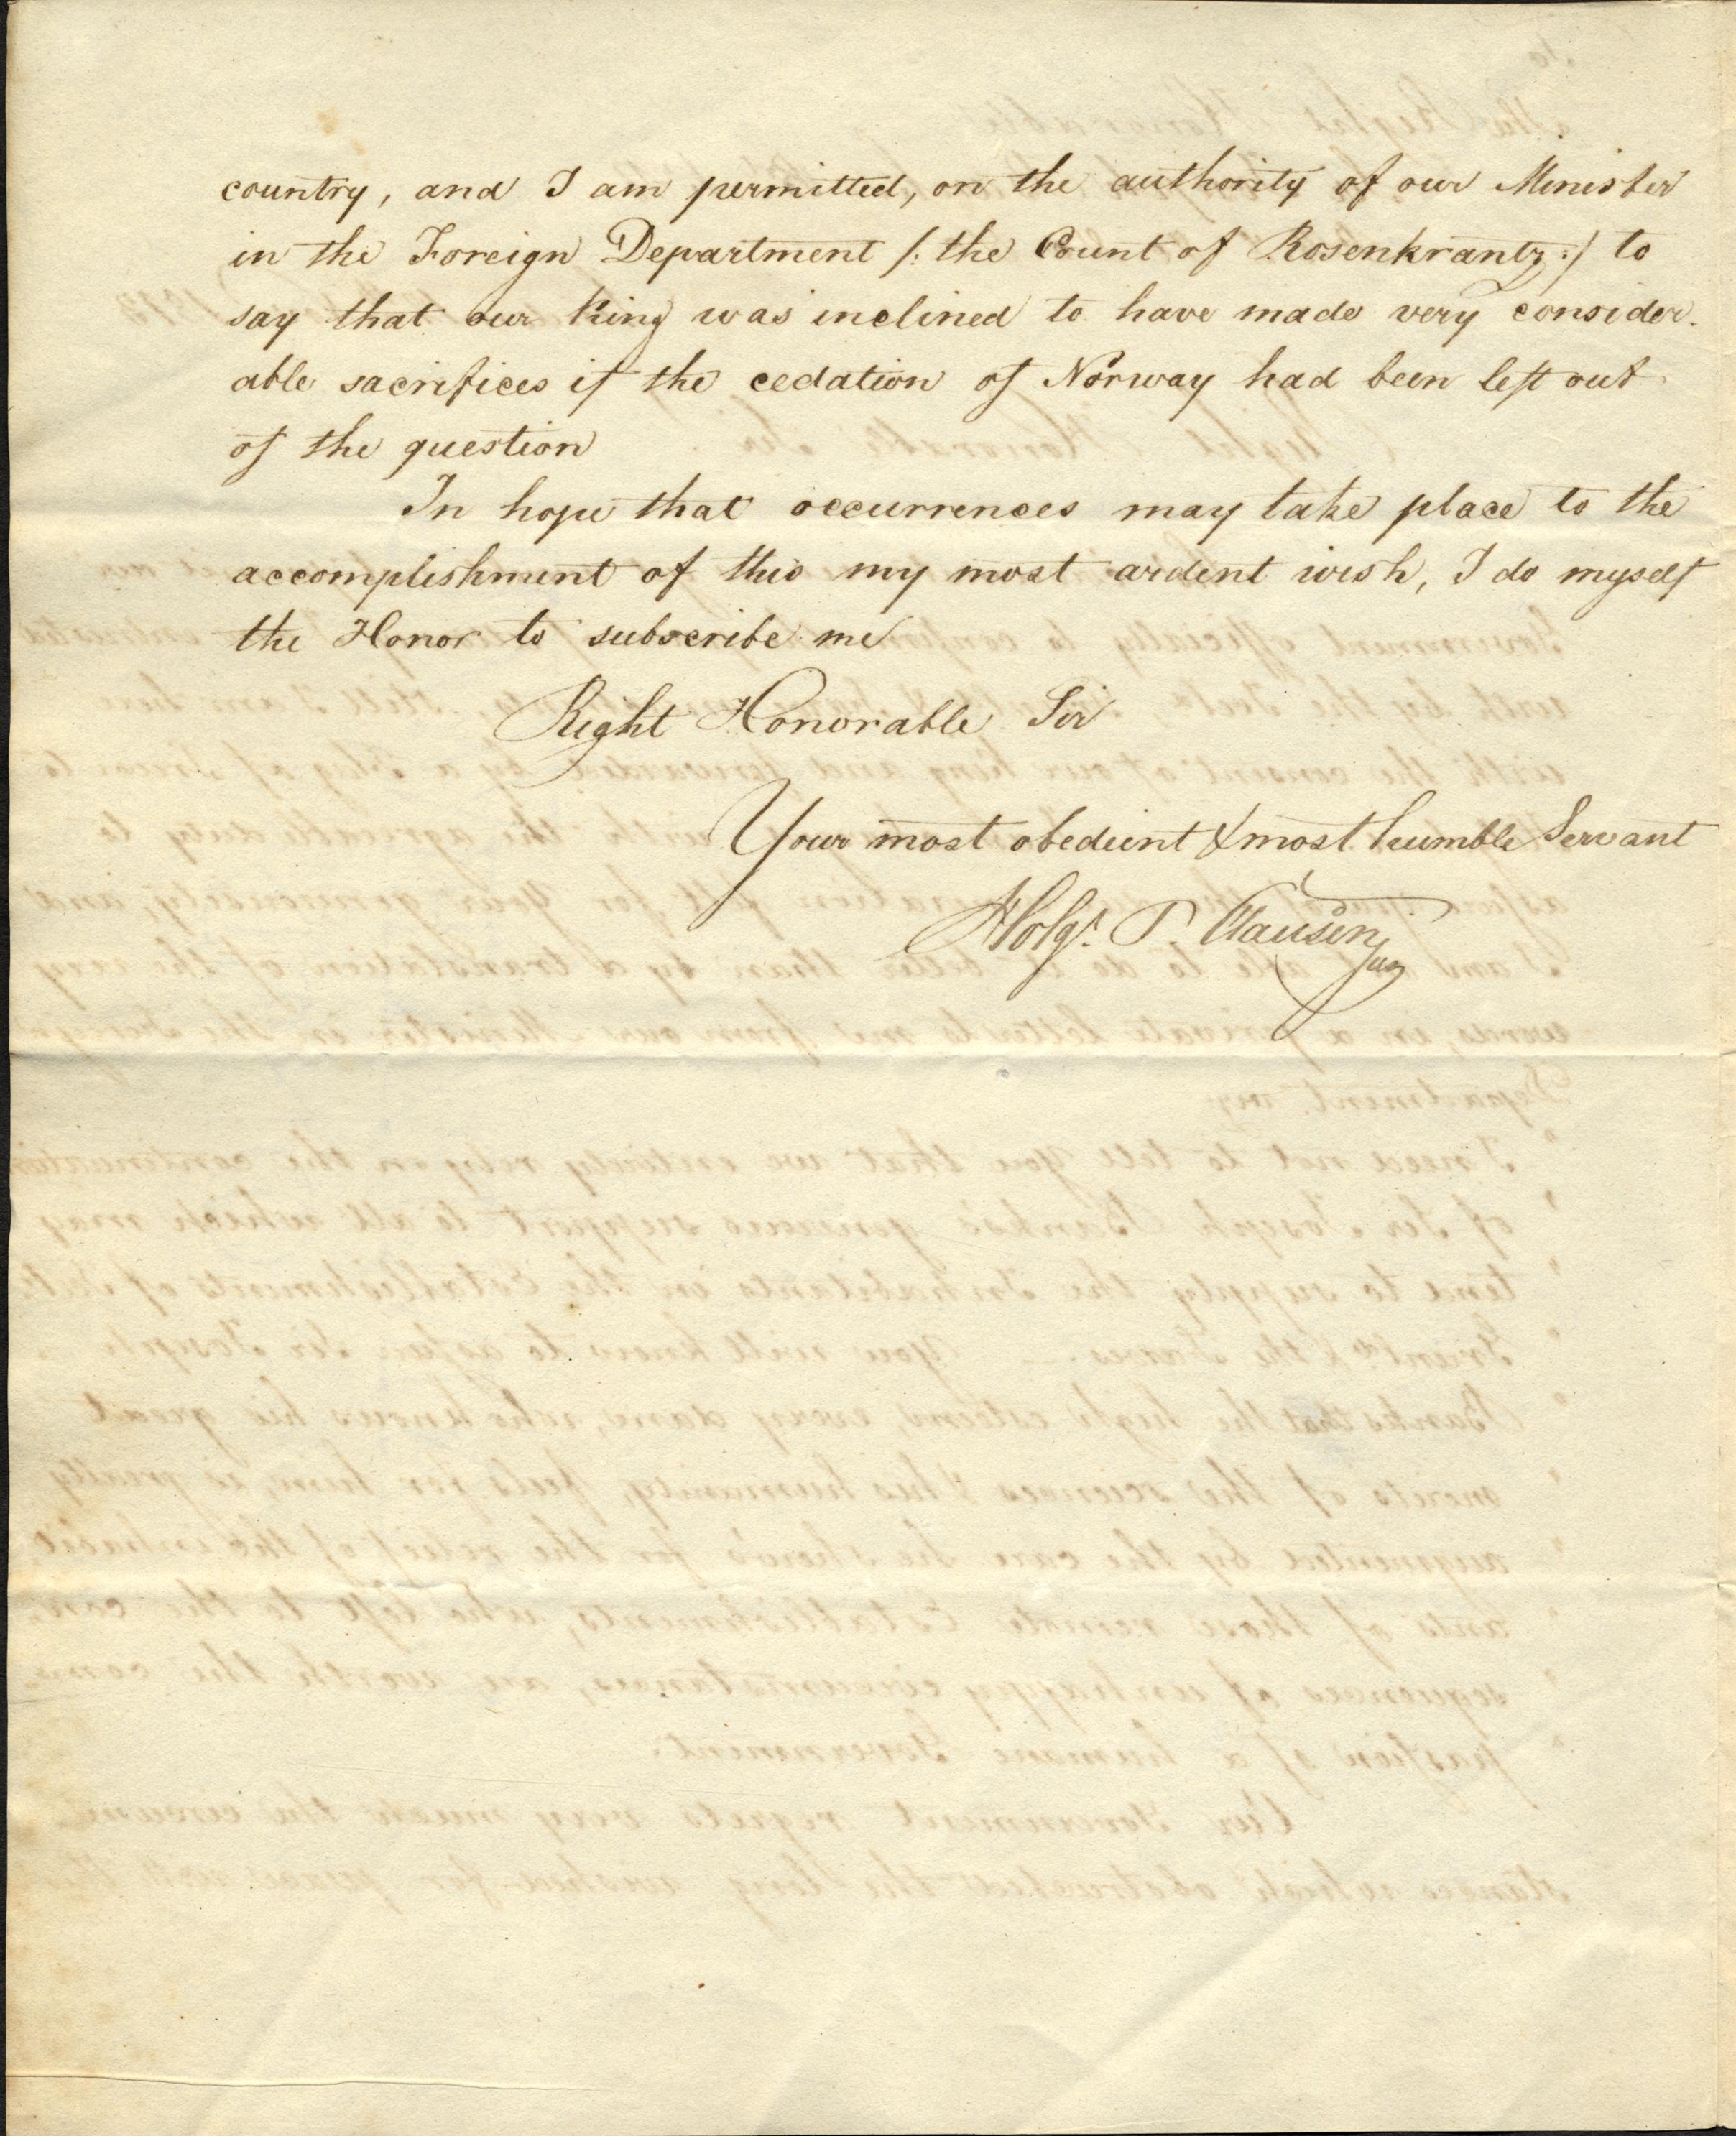 country, and I am permitted, on the authority of our Minister
in the Foreign Department /: the Count of Rosenkrantz :/ to
say that our King was inclined to have made very consider-
able sacrifices if the cedation of Norway had been left out
of the question
In hope that occurrences may take place to the
accomplishment of this my most ardent wish, I do myself
the Honor to subscribe me
Right Honorable Sir
Your most obedient & most humble Servant
Holgr. P. Clausen